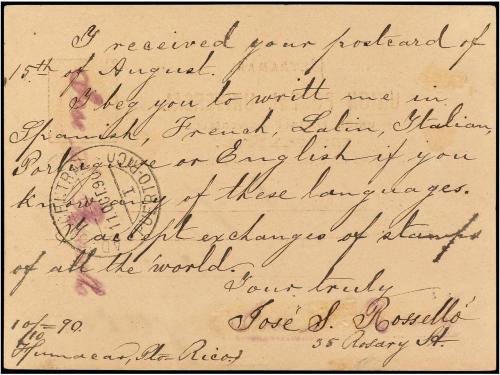 I received your postcard of
15th of August.
I beg you to writt me in
Spanish, French, Latin, Italian,
Portuguese or English if you
know any of these languages.
I accept exchanges of stamps
of all the world.
Yours truly
José S. Rosselló
35 Rosary St.
10/10=90.
Humacao, Pto=Rico.
PUERTO-RICO
11 OCT 90